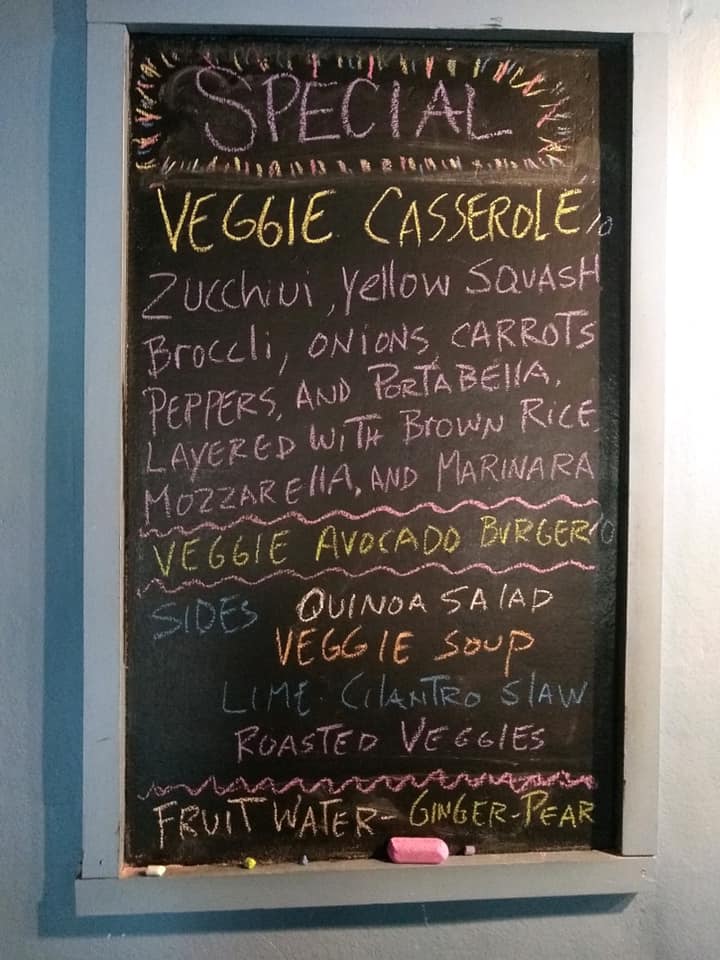 SPECIAL
VEGGIE CASSEROLE 10
Zucchini, yellow SQUASH
Broccli, ONIONS, CARROTS
PEPPERS, AND PORTABEllA,
LAYERED WITH BROWN RICE,
MOZZAREllA, AND MARINARA
VEGGIE AVOCADO BURGER 10
SIDES QUINOA SAlAD
VEGGIE SOUP
LIME CILANTRO SlAW
ROASTED VEGGIES
FRUIT WATER - GINGER-PEAR